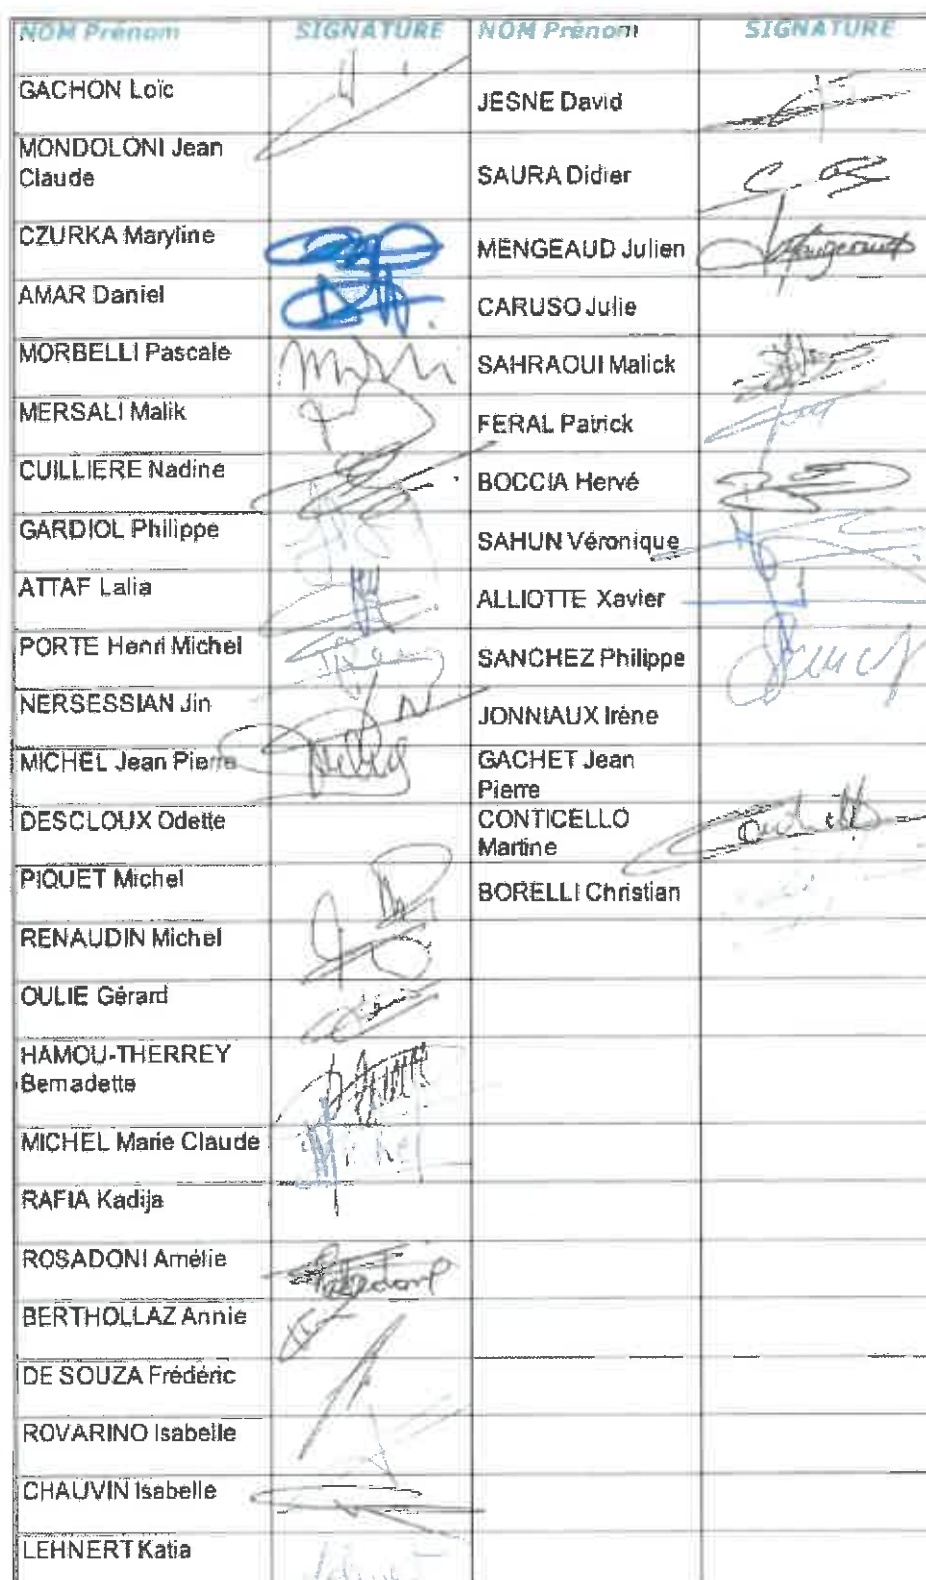 NOM Prénom SIGNATURE NOM Prénom SIGNATURE
GACHON Loïc
JESNE David
MONDOLONI Jean
Claude
SAURA Didier
CZURKA Maryline
MENGEAUD Julien
AMAR Daniel
CARUSO Julie
MORBELLI Pascale
SAHRAOUI Malick
MERSALI Malik
FERAL Patrick
CUILLIERE Nadine
BOCCIA Hervé
GARDIOL Philippe
SAHUN Véronique
ATTAF Lalia
ALLIOTTE Xavier
PORTE Henri Michel
SANCHEZ Philippe
NERSESSIAN Jin
JONNIAUX Irène
MICHEL Jean Pierre
GACHET Jean
Pierre
DESCLOUX Odette
CONTICELLO
Martine
PIQUET Michel
BORELLI Christian
RENAUDIN Michel
OULIE Gérard
HAMOU-THERREY
Bernadette
MICHEL Marie Claude
RAFIA Kadija
ROSADONI Amélie
BERTHOLLAZ Annie
DE SOUZA Frédéric
ROVARINO Isabelle
CHAUVIN Isabelle
LEHNERT Katia